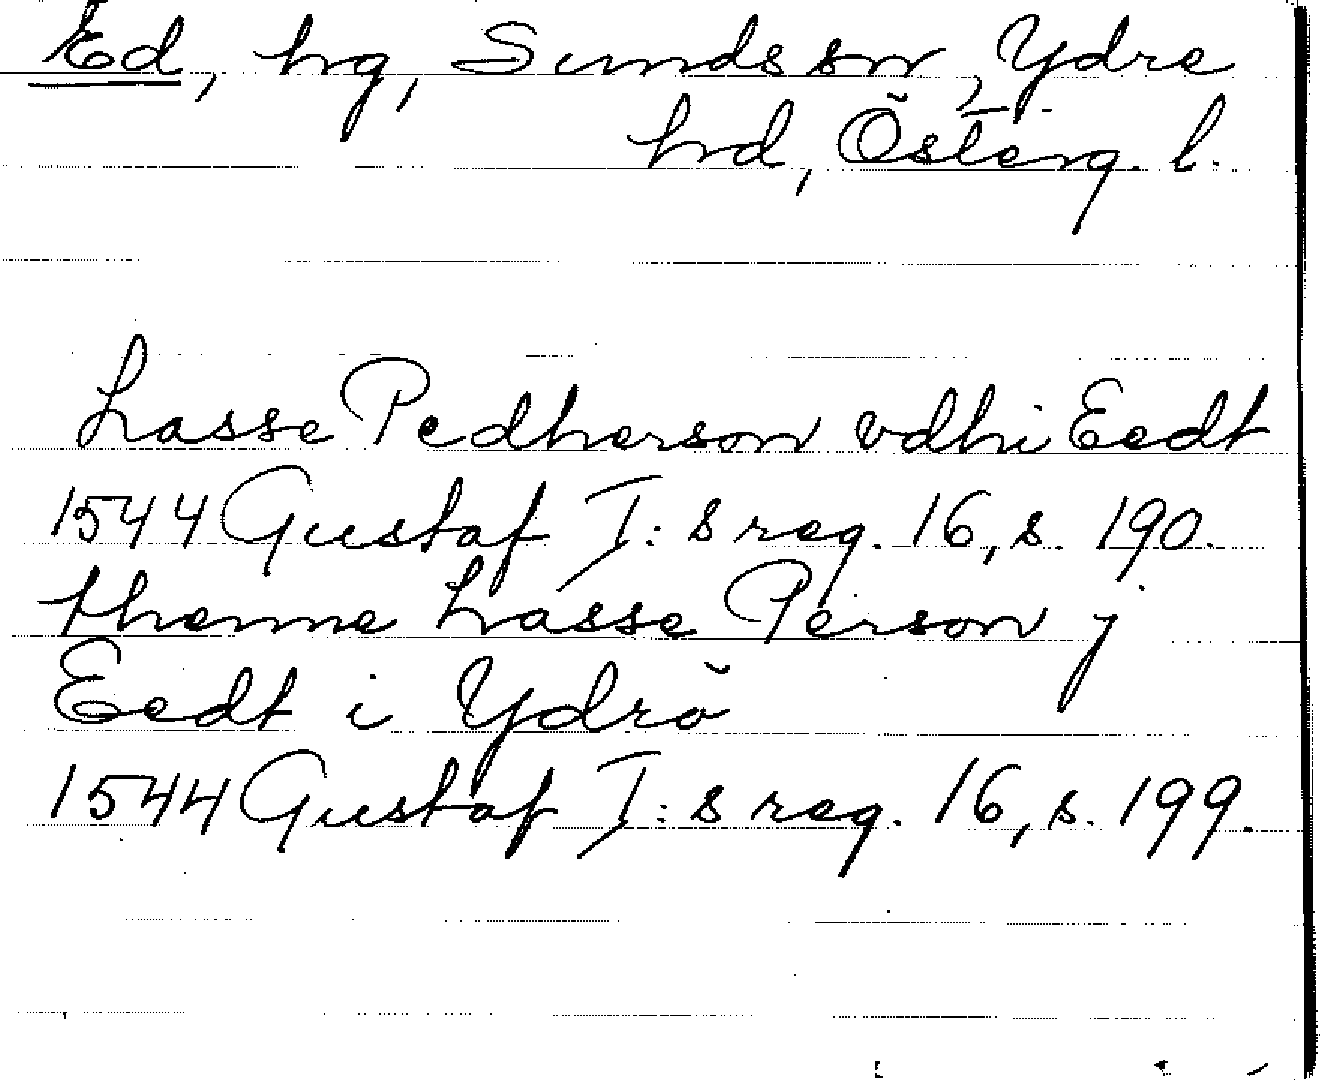 Ed, hg, Sunds sn, Ydre
hd, Österg. l.
Lasse Pedherson vdhi Eedt
1544 Gustaf I:s reg. 16, s. 190.
thenne Lasse Person j
Eedt i Ydrö
1544 Gustaf I:s reg. 16, s. 199.